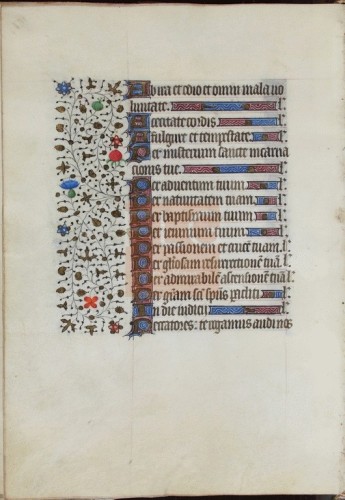 Ab yra et odio et omni mala vo
luntate.
A cecitate cordis.
A fulgure et tempestate.
Per misterium sancte incarna
cionis tue.
Per adventum tuum.
Per nativitatem tuam.
Per baptismum tuum.
Per ieiunium tuum.
Per passionem et crucē tuam l.
Per gl̄osam resurrectionē tuā l.
Per admirabilē ascensionē tuā l.
Per gr̄am sc̄i sp̄us paracliti
In die iudicii
Peccatores: te rogamus audi nos